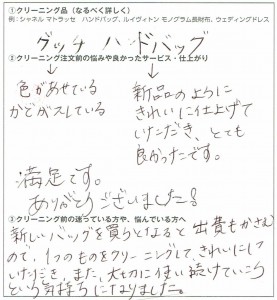 ①クリーニング品（なるべく詳しく）
例：シャネル マトラッセ ハンドバッグ、ルイヴィトン モノグラム長財布、ウェディングドレス
グッチ ハンドバッグ
②クリーニング注文前の悩みや良かったサービス・仕上がり
↓
色があせている
かどがスレている
↓
新品のように
きれいに仕上げて
いただき、とても
良かったです。
満足です。
ありがとうございました！
③クリーニング前の迷っている方や、悩んでいる方へ
新しいバッグを買うとなると 出費もかさむ
ので、1つのものをクリーニングして、きれいにして
いただき、また、大切に使い続けていこう
という気持ちになりました。